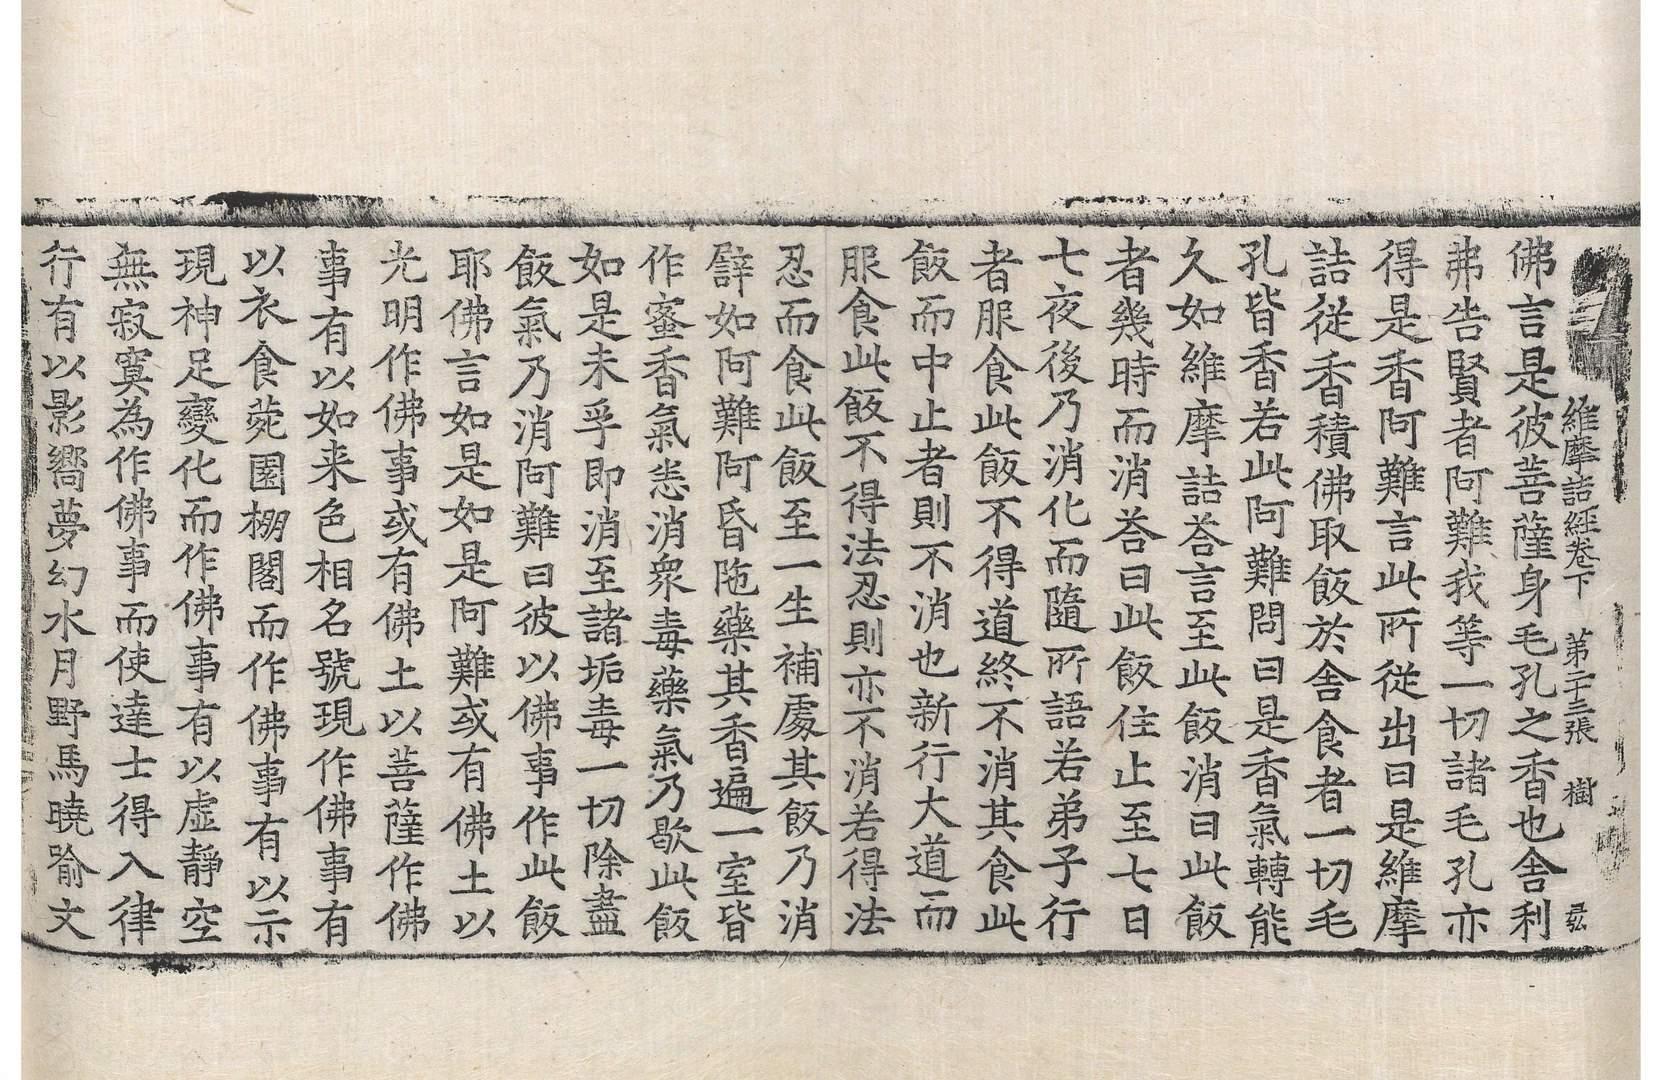 維摩詰経卷下 苐二十三張 樹
佛言是彼菩薩身毛孔之香也舎利
弗告賢者阿難我等一切諸毛孔亦
得是香阿難言此所従出曰是維摩
詰従香積佛取飯於舎食者一切毛
孔皆香若此阿難問曰是香氣轉能
久如維摩詰荅言至此飯消曰此飯
者幾時而消荅曰此飯住止至七日
七夜後乃消化而隨所語若弟子行
者服食此飯不得道終不消其食此
飯而中止者則不消也新行大道而
服食此飯不得法忍則亦不消若得法
忍而食此飯至一生補處其飯乃消
譬如阿難阿昏陁藥其香遍一室皆
作蜜香氣悉消衆毒藥氣乃歇此飯
如是未孚即消至諸垢毒一切除盡
飯氣乃消阿難曰彼以佛事作此飯
耶佛言如是如是阿難或有佛土以
光明作佛事或有佛土以菩薩作佛
事有以如来色相名號現作佛事有
以衣食菀園棚閣而作佛事有以示
現神足變化而作佛事有以虛靜空
無寂寞為作佛事而使達士得入律
行有以影嚮夢幻水月野馬曉喻文